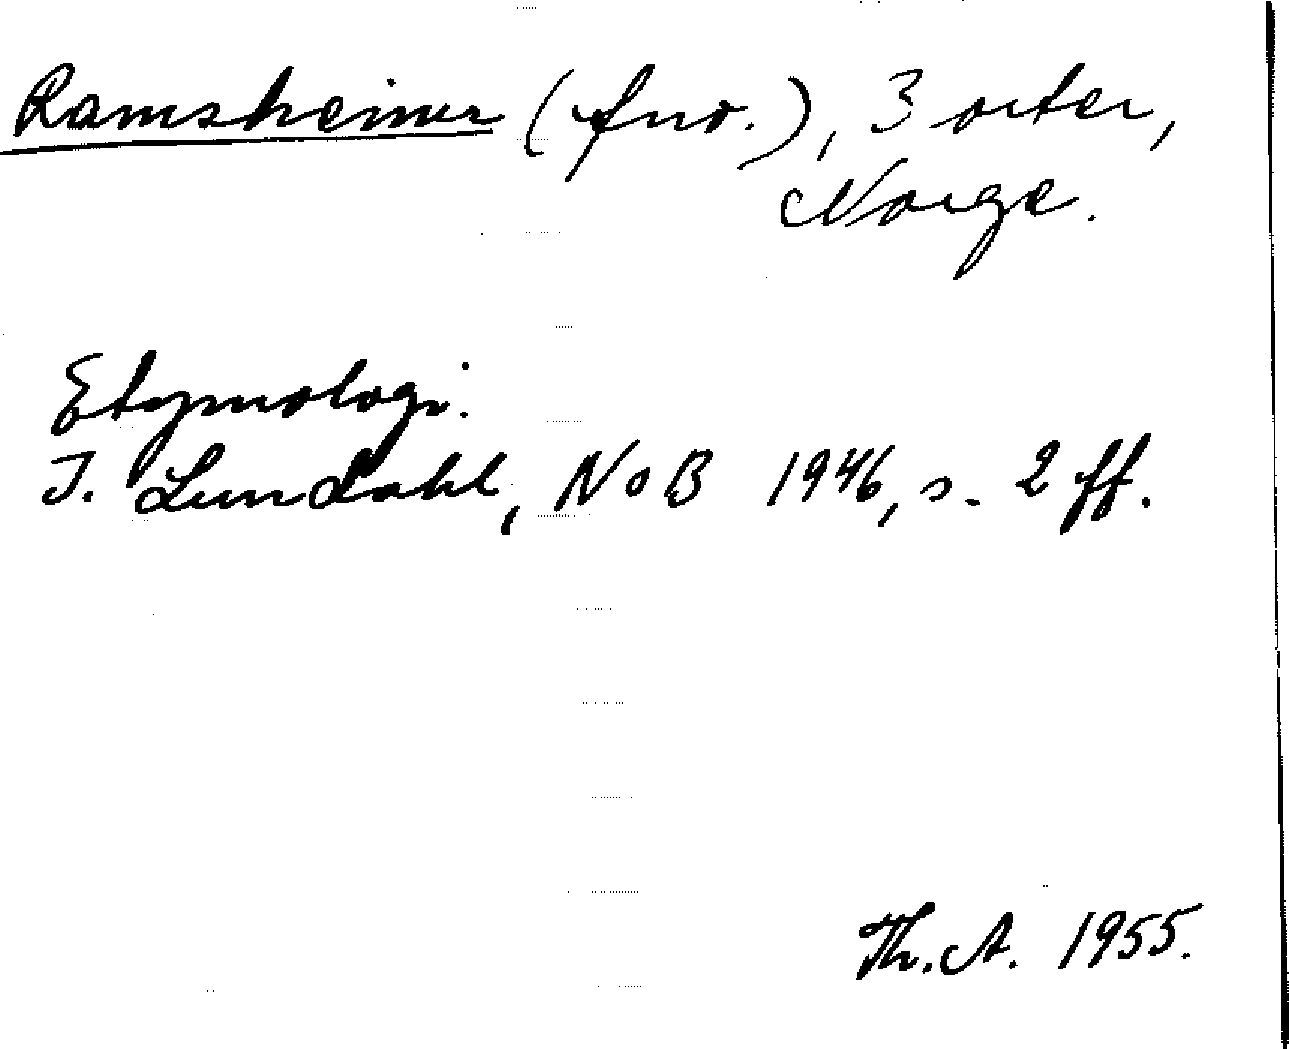 Ramsheimr (fno.), 3 orter,
Norge.
Etymologi:
I. Lundahl, NoB 1946, s. 2 ff.
Th. A. 1955.